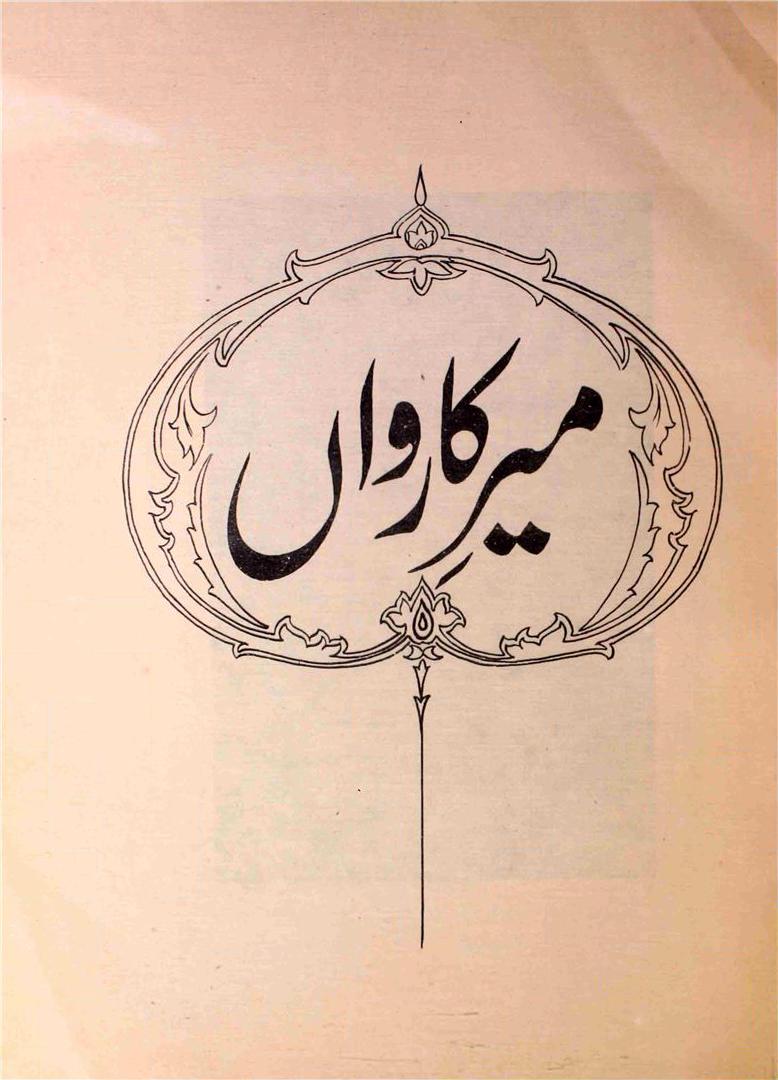 میرِ کارواں